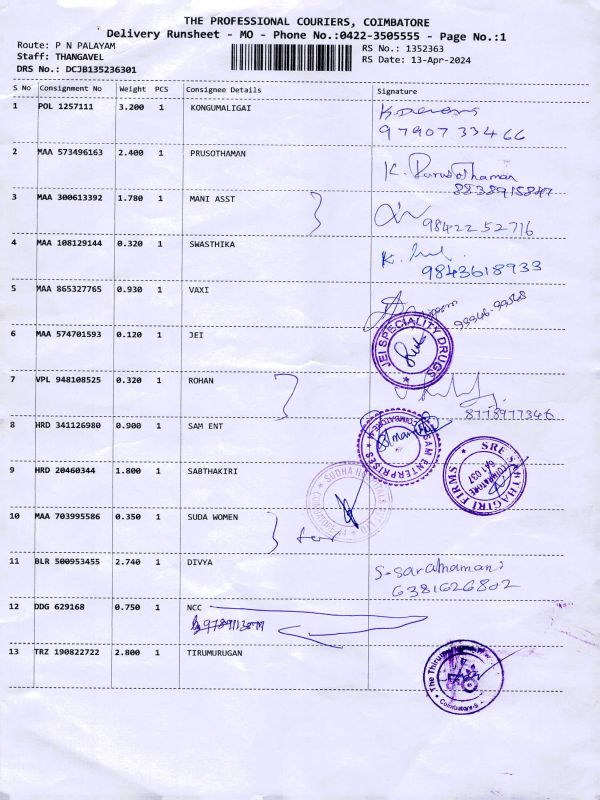 THE PROFESSIONAL COURIERS, COIMBATORE
Delivery Runsheet - MO - Phone No.:0422-3505555 - Page No.:1
Route: P N PALAYAM
RS No.: 1352363
Staff: THANGAVEL
RS Date: 13-Apr-2024
DRS No.: DCJB135236301
S No Consignment No Weight PCS Consignee Details Signature
1 POL 1257111 3.200 1 KONGUMALIGAI
97907 33466
2 MAA 573496163 2.400 1 PRUSOTHAMAN K. Purusothaman
8838915847
3 MAA 300613392 1.780 1 MANI ASST
98422 52716
4 MAA 108129144 0.320 1 SWASTHIKA K.
9843618933
5 MAA 865327765 0.930 1 VAXI
6 MAA 574701593 0.120 1 JEI
JEI SPECIALITY DRUGS
7 VPL 948108525 0.320 1 ROHAN
8778977346
8 HRD 341126980 0.900 1 SAM ENT
SAM ENTERPRISES COIMBATORE
9 HRD 20460344 1.800 1 SABTHAKIRI
FIRMS
10 MAA 703995586 0.350 1 SUDA WOMEN
11 BLR 500953455 2.740 1 DIVYA
6381626802
12 DDG 629168 0.750 1 NCC
13 TRZ 190822722 2.800 1 TIRUMURUGAN